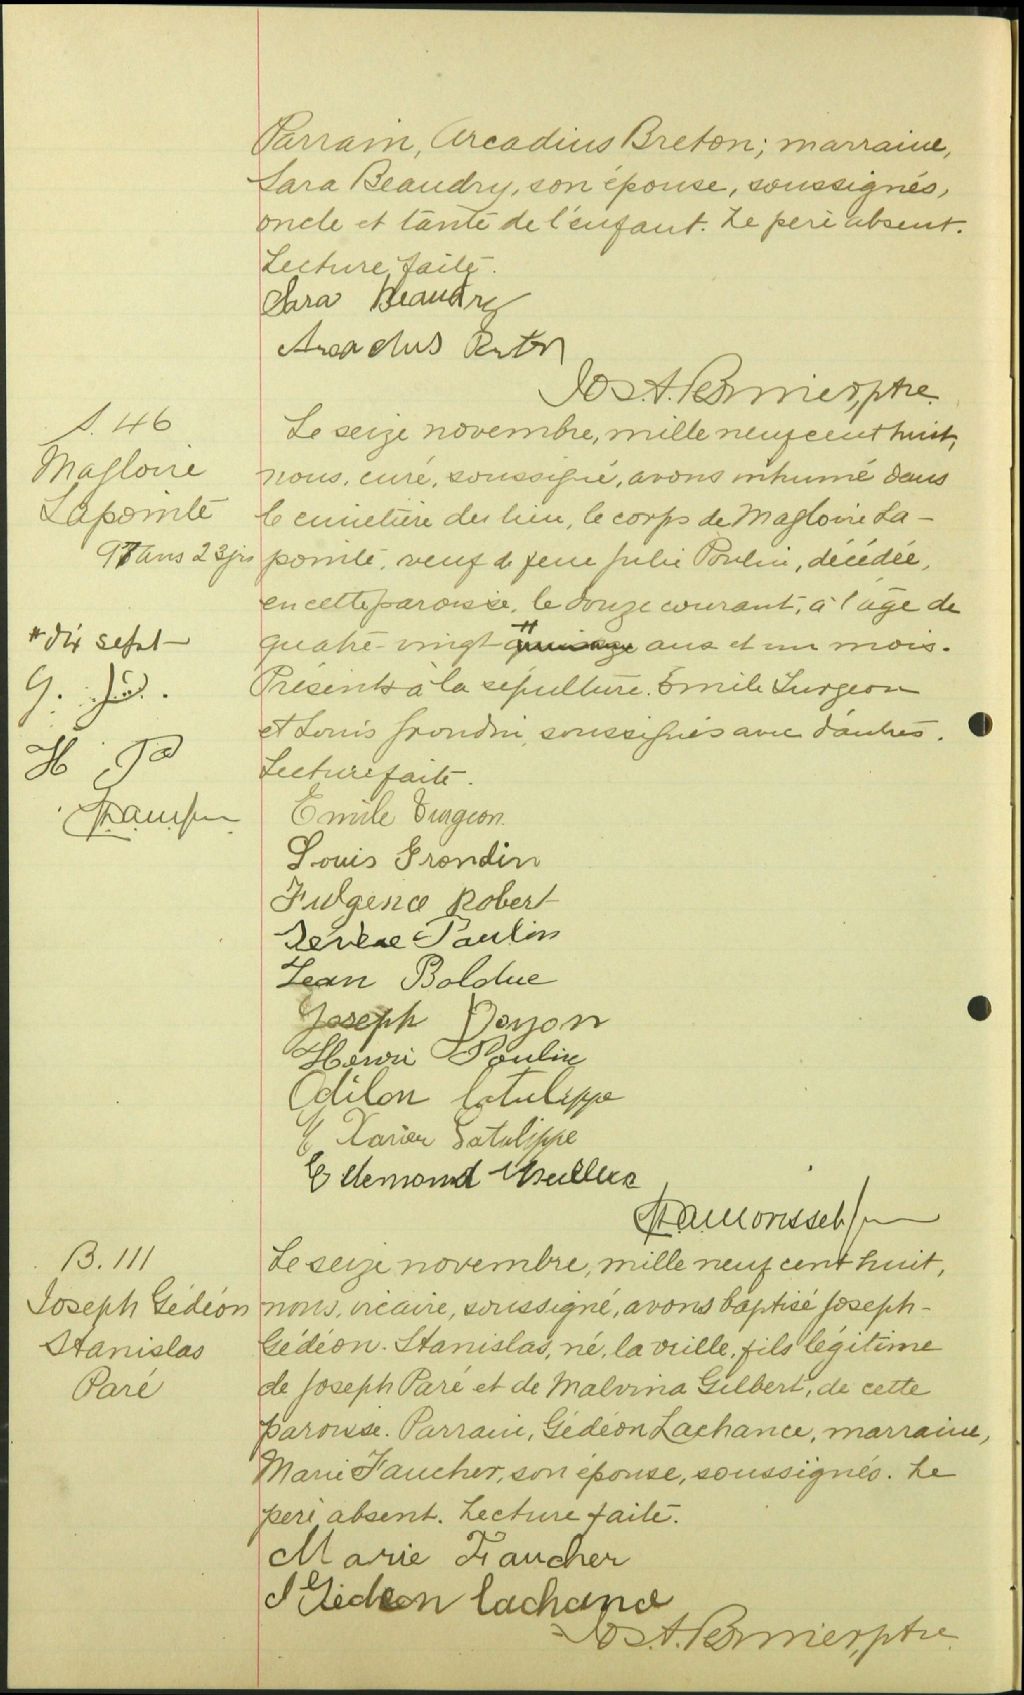 Parrain, Arcadius Breton; marraine,
Sara Beaudry, son épouse, soussignés,
oncle et tante de l'enfant. Le père absent.
Lecture faite.
Sara Beaudry
Jos. A. Bernier, ptre.
S. 46
Magloire
Lapointe
97 ans 23 jrs
Le seize novembre, mille neuf cent huit,
nous, curé, soussigné, avons inhumé dans
le cimetière du lieu, le corps de Magloire La-
pointe, veuf de feue Julie Poulin, décédée,
en cette paroisse, le douze courant, à l'âge de
quatre-vingt-quinze ans et un mois.
* dix sept
Présents à la sépulture: Émile Turgeon
et Louis Grondin, soussignés avec d'autres.
Lecture faite.
Emile Turgeon
Louis Grondin
Fulgence Robert
Poulin
Jean Bolduc
Joseph Doyon
Henri Poulin
Odilon Latulippe
Xavier Latulippe
B. 111
Joseph Gédéon
Stanislas
Paré
Le seize novembre, mille neuf cent huit,
nous, vicaire, soussigné, avons baptisé Joseph-
Gédéon-Stanislas, né, la veille, fils légitime
de Joseph Paré et de Malvina Gilbert, de cette
paroisse. Parrain, Gédéon Lachance, marraine,
Marie Faucher, son épouse, soussignés. Le
père absent. Lecture faite.
Marie Faucher
Gédéon Lachance
Jos. A. Bernier, ptre.